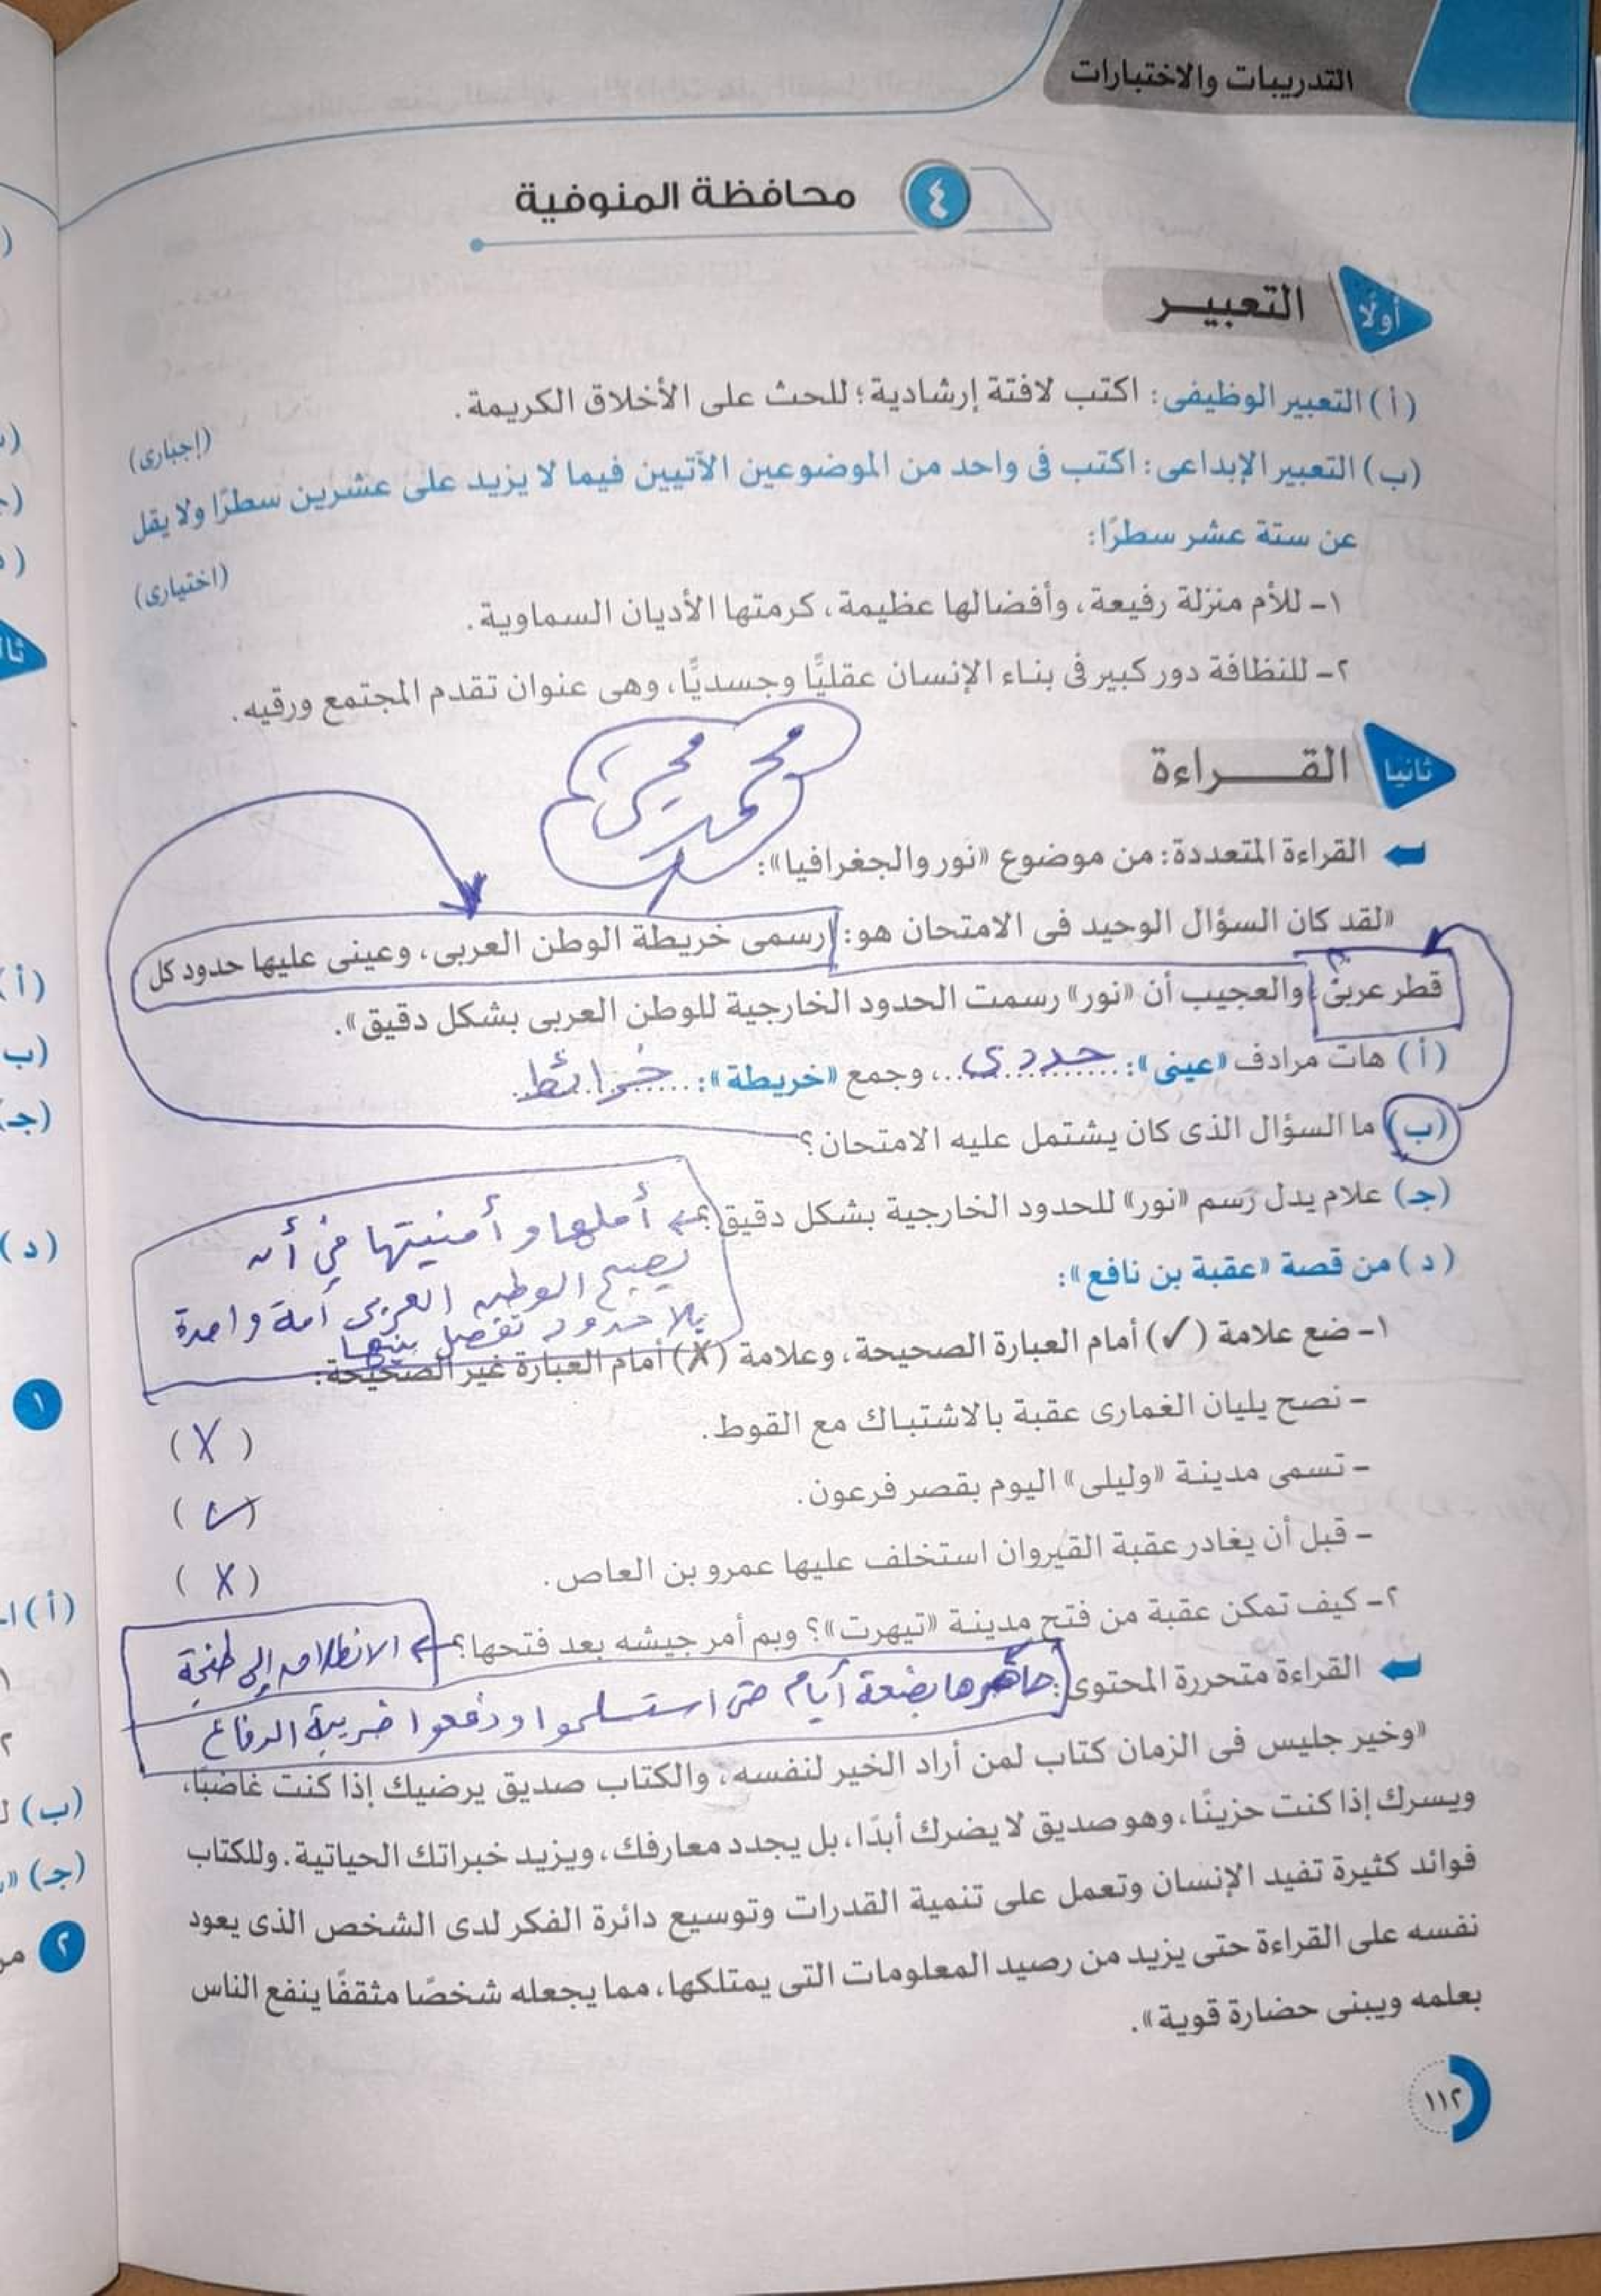 التدريبات والاختبارات
٤ محافظة المنوفية
أولًا التعبير
(أ) التعبير الوظيفى: اكتب لافتة إرشادية؛ للحث على الأخلاق الكريمة.
(إجبارى)
(ب) التعبير الإبداعى: اكتب فى واحد من الموضوعين الآتيين فيما لا يزيد على عشرين سطرًا ولا يقل
عن ستة عشر سطرًا:
(اختيارى)
١- للأم منزلة رفيعة، وأفضالها عظيمة، كرمتها الأديان السماوية.
٢- للنظافة دور كبير فى بناء الإنسان عقليًّا وجسديًّا، وهى عنوان تقدم المجتمع ورقيه.
ثانيا القراءة
محمد
القراءة المتعددة: من موضوع «نور والجغرافيا»:
«لقد كان السؤال الوحيد فى الامتحان هو: ارسمى خريطة الوطن العربى، وعينى عليها حدود كل
قطر عربى، والعجيب أن «نور» رسمت الحدود الخارجية للوطن العربى بشكل دقيق».
(أ) هات مرادف «عينى»: حددى، وجمع «خريطة»: خرائط
(ب) ما السؤال الذى كان يشتمل عليه الامتحان؟
(جـ) علام يدل رسم «نور» للحدود الخارجية بشكل دقيق؟ أملها وأمنيتها في أن
يصبح الوطن العربى أمة واحدة
بلا حدود تفصل بينها
(د) من قصة «عقبة بن نافع»:
١- ضع علامة (✓) أمام العبارة الصحيحة، وعلامة (X) أمام العبارة غير الصحيحة:
- نصح يليان الغمارى عقبة بالاشتباك مع القوط. (X)
- تسمى مدينة «وليلى» اليوم بقصر فرعون. (✓)
- قبل أن يغادر عقبة القيروان استخلف عليها عمرو بن العاص. (X)
٢- كيف تمكن عقبة من فتح مدينة «تيهرت»؟ وبم أمر جيشه بعد فتحها؟ الانطلاق إلى طنجة
القراءة متحررة المحتوى: حاصرها بضعة أيام حتى استسلموا ودفعوا ضريبة الدفاع
«وخير جليس فى الزمان كتاب لمن أراد الخير لنفسه، والكتاب صديق يرضيك إذا كنت غاضبًا،
ويسرك إذا كنت حزينًا، وهو صديق لا يضرك أبدًا، بل يجدد معارفك، ويزيد خبراتك الحياتية. وللكتاب
فوائد كثيرة تفيد الإنسان وتعمل على تنمية القدرات وتوسيع دائرة الفكر لدى الشخص الذى يعود
نفسه على القراءة حتى يزيد من رصيد المعلومات التى يمتلكها، مما يجعله شخصًا مثقفًا ينفع الناس
بعلمه ويبنى حضارة قوية».
١١٢